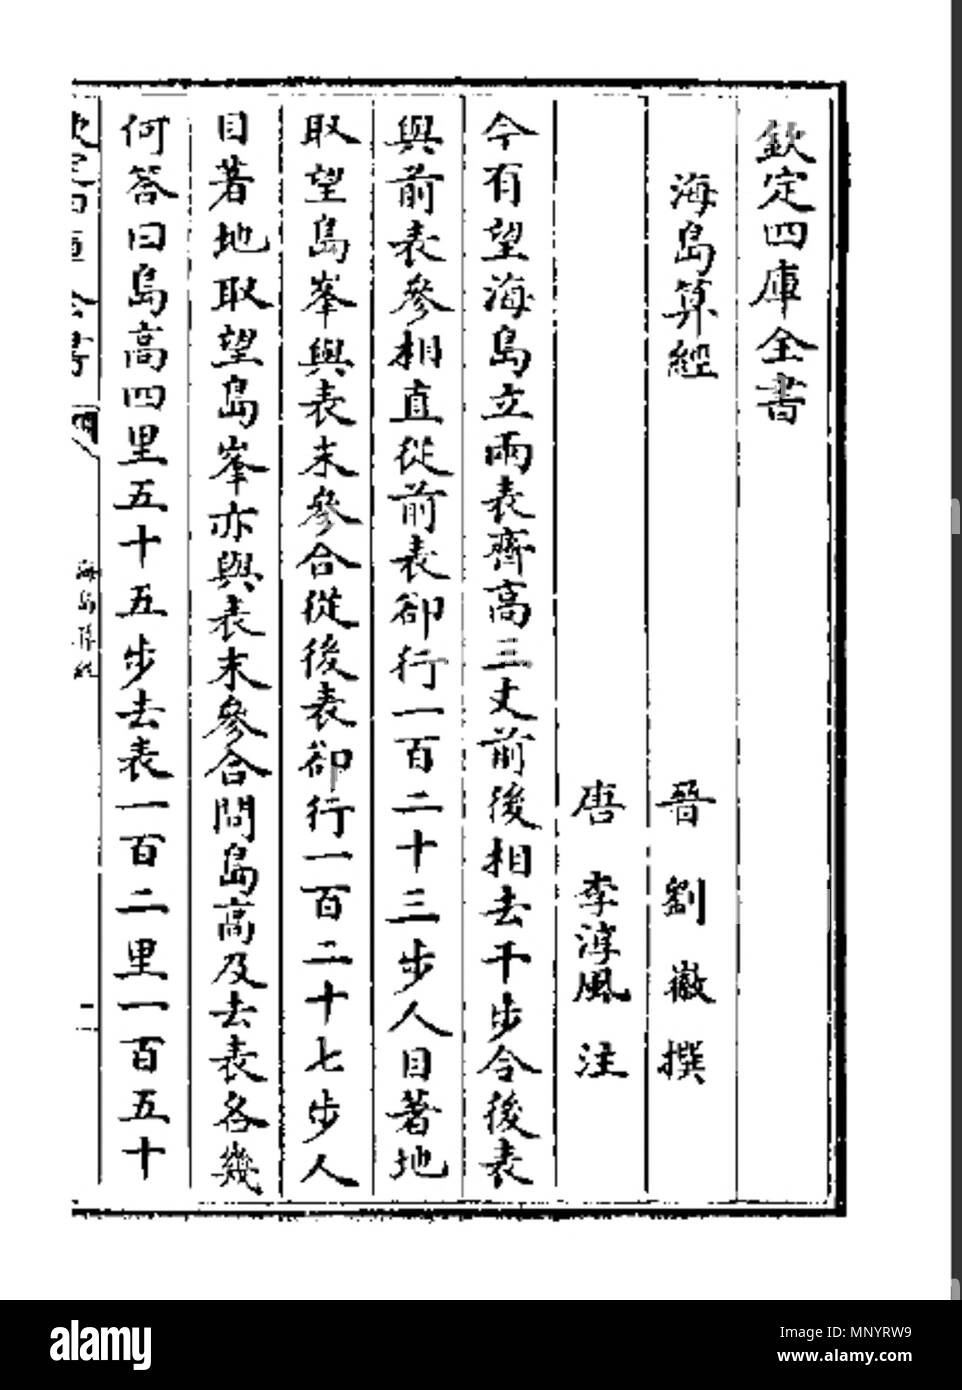 欽定四庫全書
海島算經
晉 劉 徽 撰
唐 李淳風 注
今有望海島立兩表齊高三丈前後相去千步令後表
與前表參相直從前表卻行一百二十三步人目著地
取望島峯與表末參合從後表卻行一百二十七步人
目著地取望島峯亦與表末參合問島高及去表各幾
何答曰島高四里五十五步去表一百二里一百五十
海島算經
二
alamy
Image ID: MNYRW9
www.alamy.com